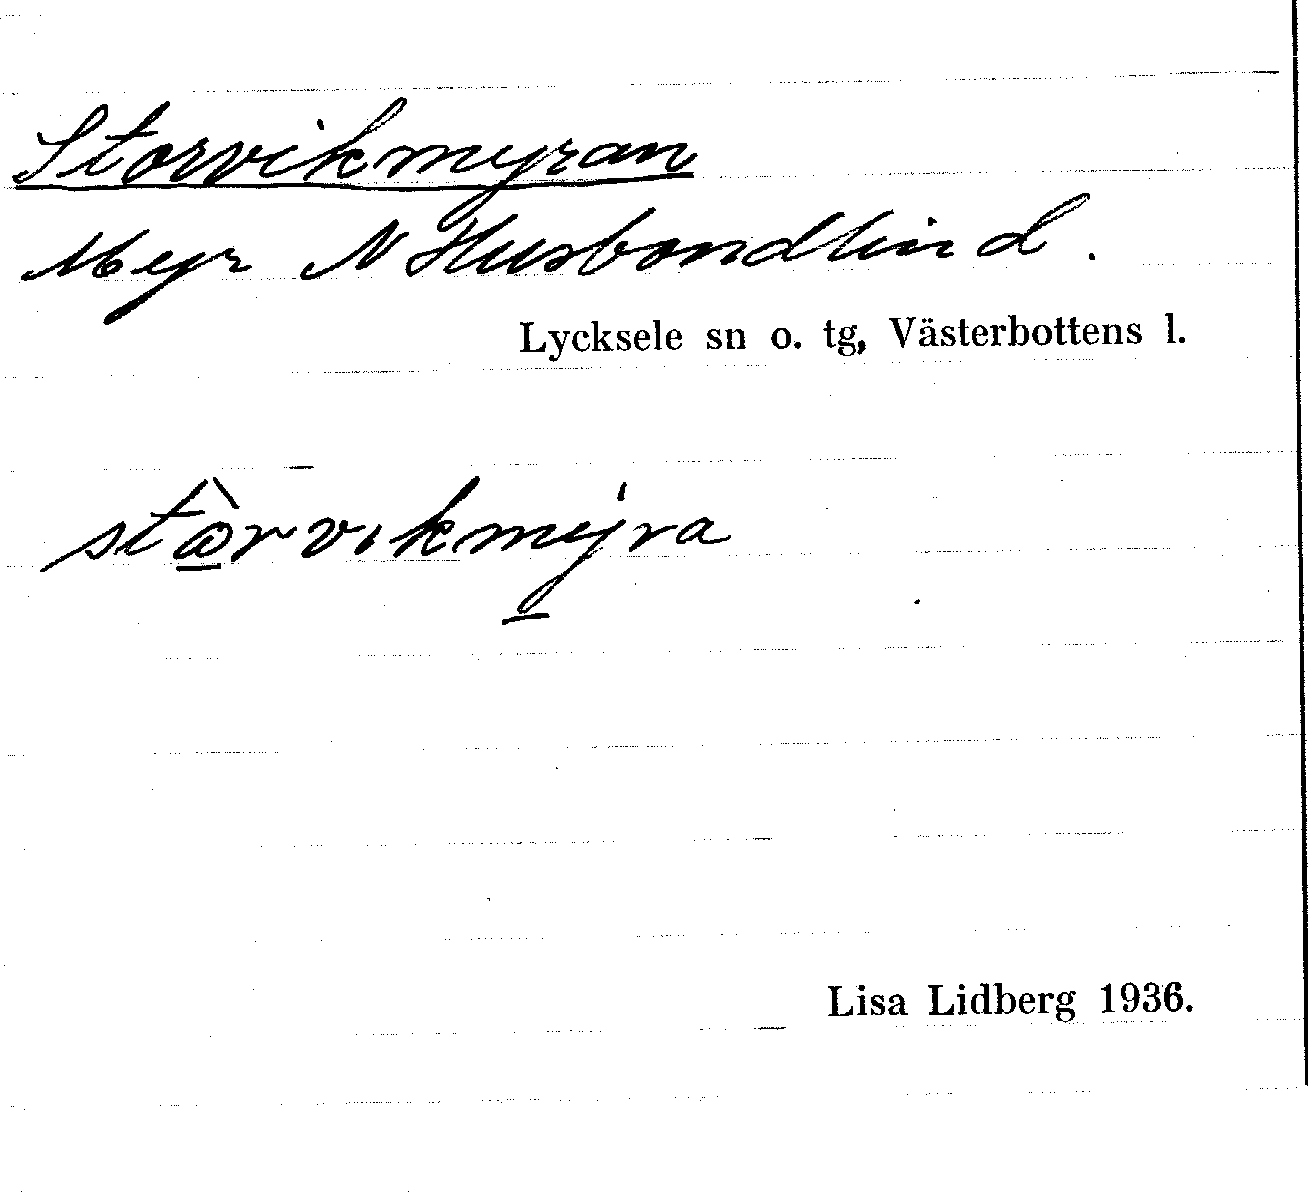 Storvikmyran
Myr N Husbondlind.
Lycksele sn o. tg, Västerbottens l.
stòrvıkmyra
Lisa Lidberg 1936.